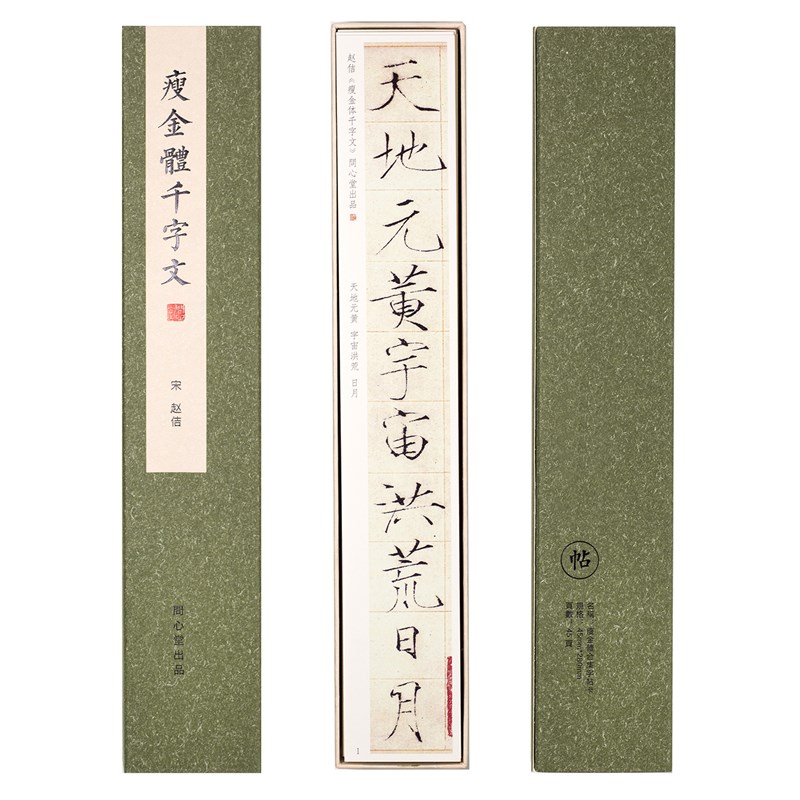 瘦金體千字文
宋 赵佶
問心堂出品
赵佶《瘦金体千字文》問心堂出品
天地元黄 宇宙洪荒 日月
天地元黄宇宙洪荒日月
1
帖
名稱：瘦金體
規格：45mm*260mm
頁數：45頁